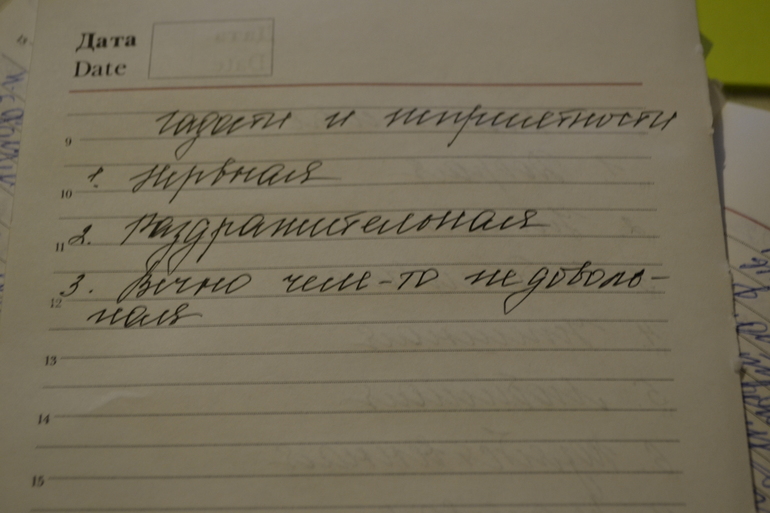 Дата
Date
9 гадости и неприятности
10 1. Нервная
11 2. Раздражительная
12 3. Вечно чем-то не доволь-
ная
13
14
15